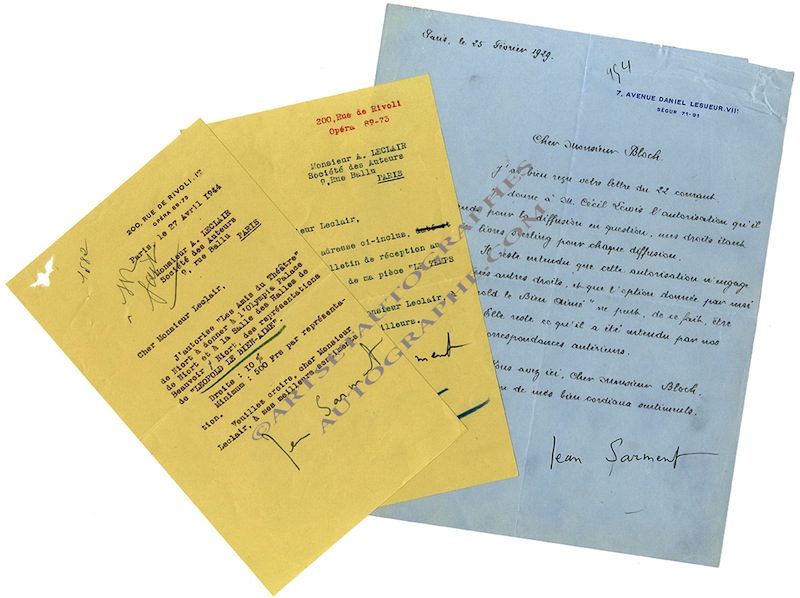 200, RUE DE RIVOLI. 1er
OPÉRA 89-73
Paris, le 27 Avril 1944
Monsieur A. LECLAIR
Société des Auteurs
9, rue Ballu
PARIS
Cher Monsieur Leclair,
J'autorise "Les Amis du Théâtre"
de Niort à donner à l'Olympia Palace
de Niort et à la Salle des Halles de
Beauvoir / Niort des représentations
de "LEOPOLD LE BIEN-AIME".
Droits : 10 %
Minimum : 500 Frs par représenta-
tion.
Veuillez croire, cher Monsieur
Leclair, à mes meilleurs sentiments
Jean Sarment
200, Rue de Rivoli
Opéra 89-73
Monsieur A. LECLAIR
Société des Auteurs
9, Rue Ballu
PARIS
eur Leclair,
adresse ci-inclus,
lletin de réception au
de ma pièce "LE TEMPS
onsieur Leclair,
illeurs.
ment
Paris, le 25 Février 1929.
7, AVENUE DANIEL LESUEUR. VIIe
SÉGUR 71-91
Cher Monsieur Bloch.
J'ai bien reçu votre lettre du 22 courant
donne à M. Cécil Lewis l'autorisation qu'il
nde pour la diffusion en question, mes droits étant
livres sterling pour chaque diffusion.
Il reste entendu que cette autorisation n'engage
mes autres droits, et que l'option donnée par moi
old le Bien Aimé" ne peut, de ce fait, être
Elle reste ce qu'il a été entendu par nos
orrespondances antérieurs.
Vous avez ici, Cher Monsieur Bloch.
on de mes bien cordiaux sentiments.
Jean Sarment
©ARTSETAUTOGRAPHES
AUTOGRAPHE.COM